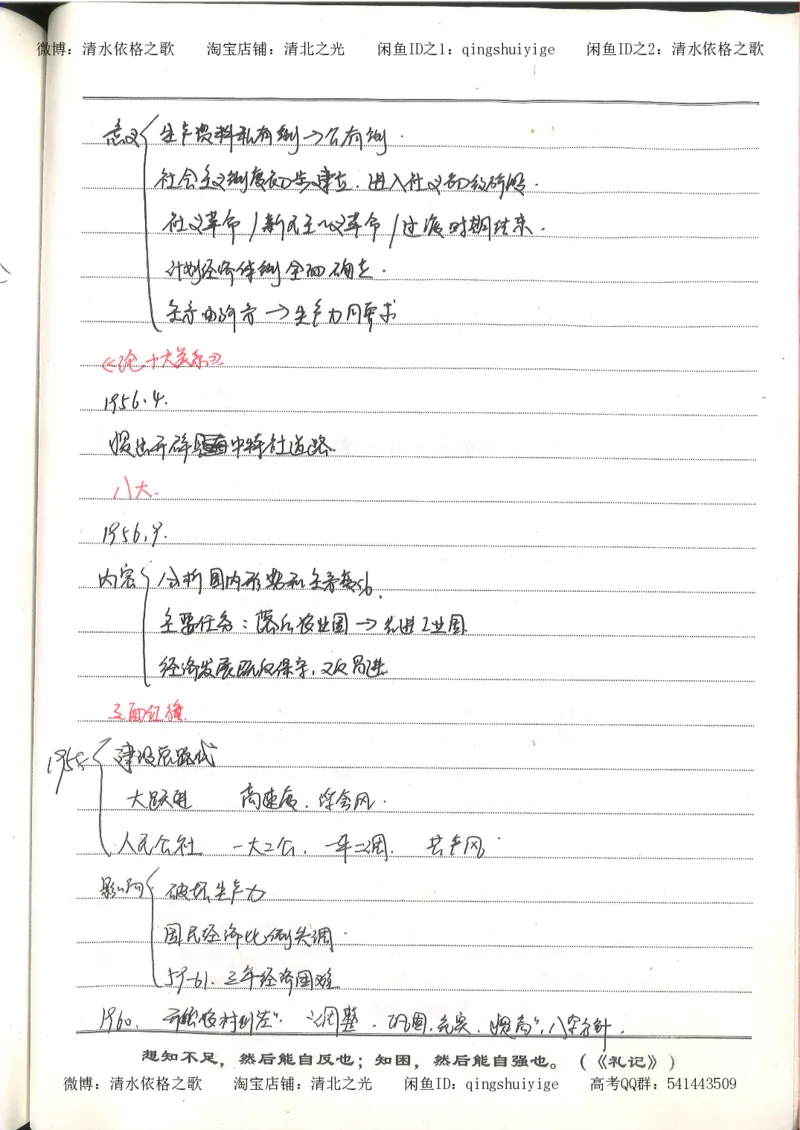 微博：清水依格之歌 淘宝店铺：清北之光 闲鱼ID之1：qingshuiyige 闲鱼ID之2：清水依格之歌
意义 生产资料私有制→公有制.
社会主义制度初步建立.进入社义初级阶段.
社义革命/新民主义革命/过渡时期结束.
计划经济体制全面确立.
主矛由阶矛→生产力同要求
《论十大关系》
1956.4.
提出开辟中特社道路.
八大.
1956.9.
内容 分析国内形势和主矛
主要任务：落后农业国→先进工业国.
经济发展既反保守,又反冒进
三面红旗
1958 建设总路线
大跃进 高速度.浮夸风.
人民公社 一大二公. 一平二调. 共产风
影响 破坏生产力
国民经济比例失调.
59-61.三年经济困难
1960. 农村 “调整.巩固.充实.提高”,八字方针.
想知不足，然后能自反也；知困，然后能自强也。（《礼记》）
微博：清水依格之歌 淘宝店铺：清北之光 闲鱼ID：qingshuiyige 高考QQ群：541443509